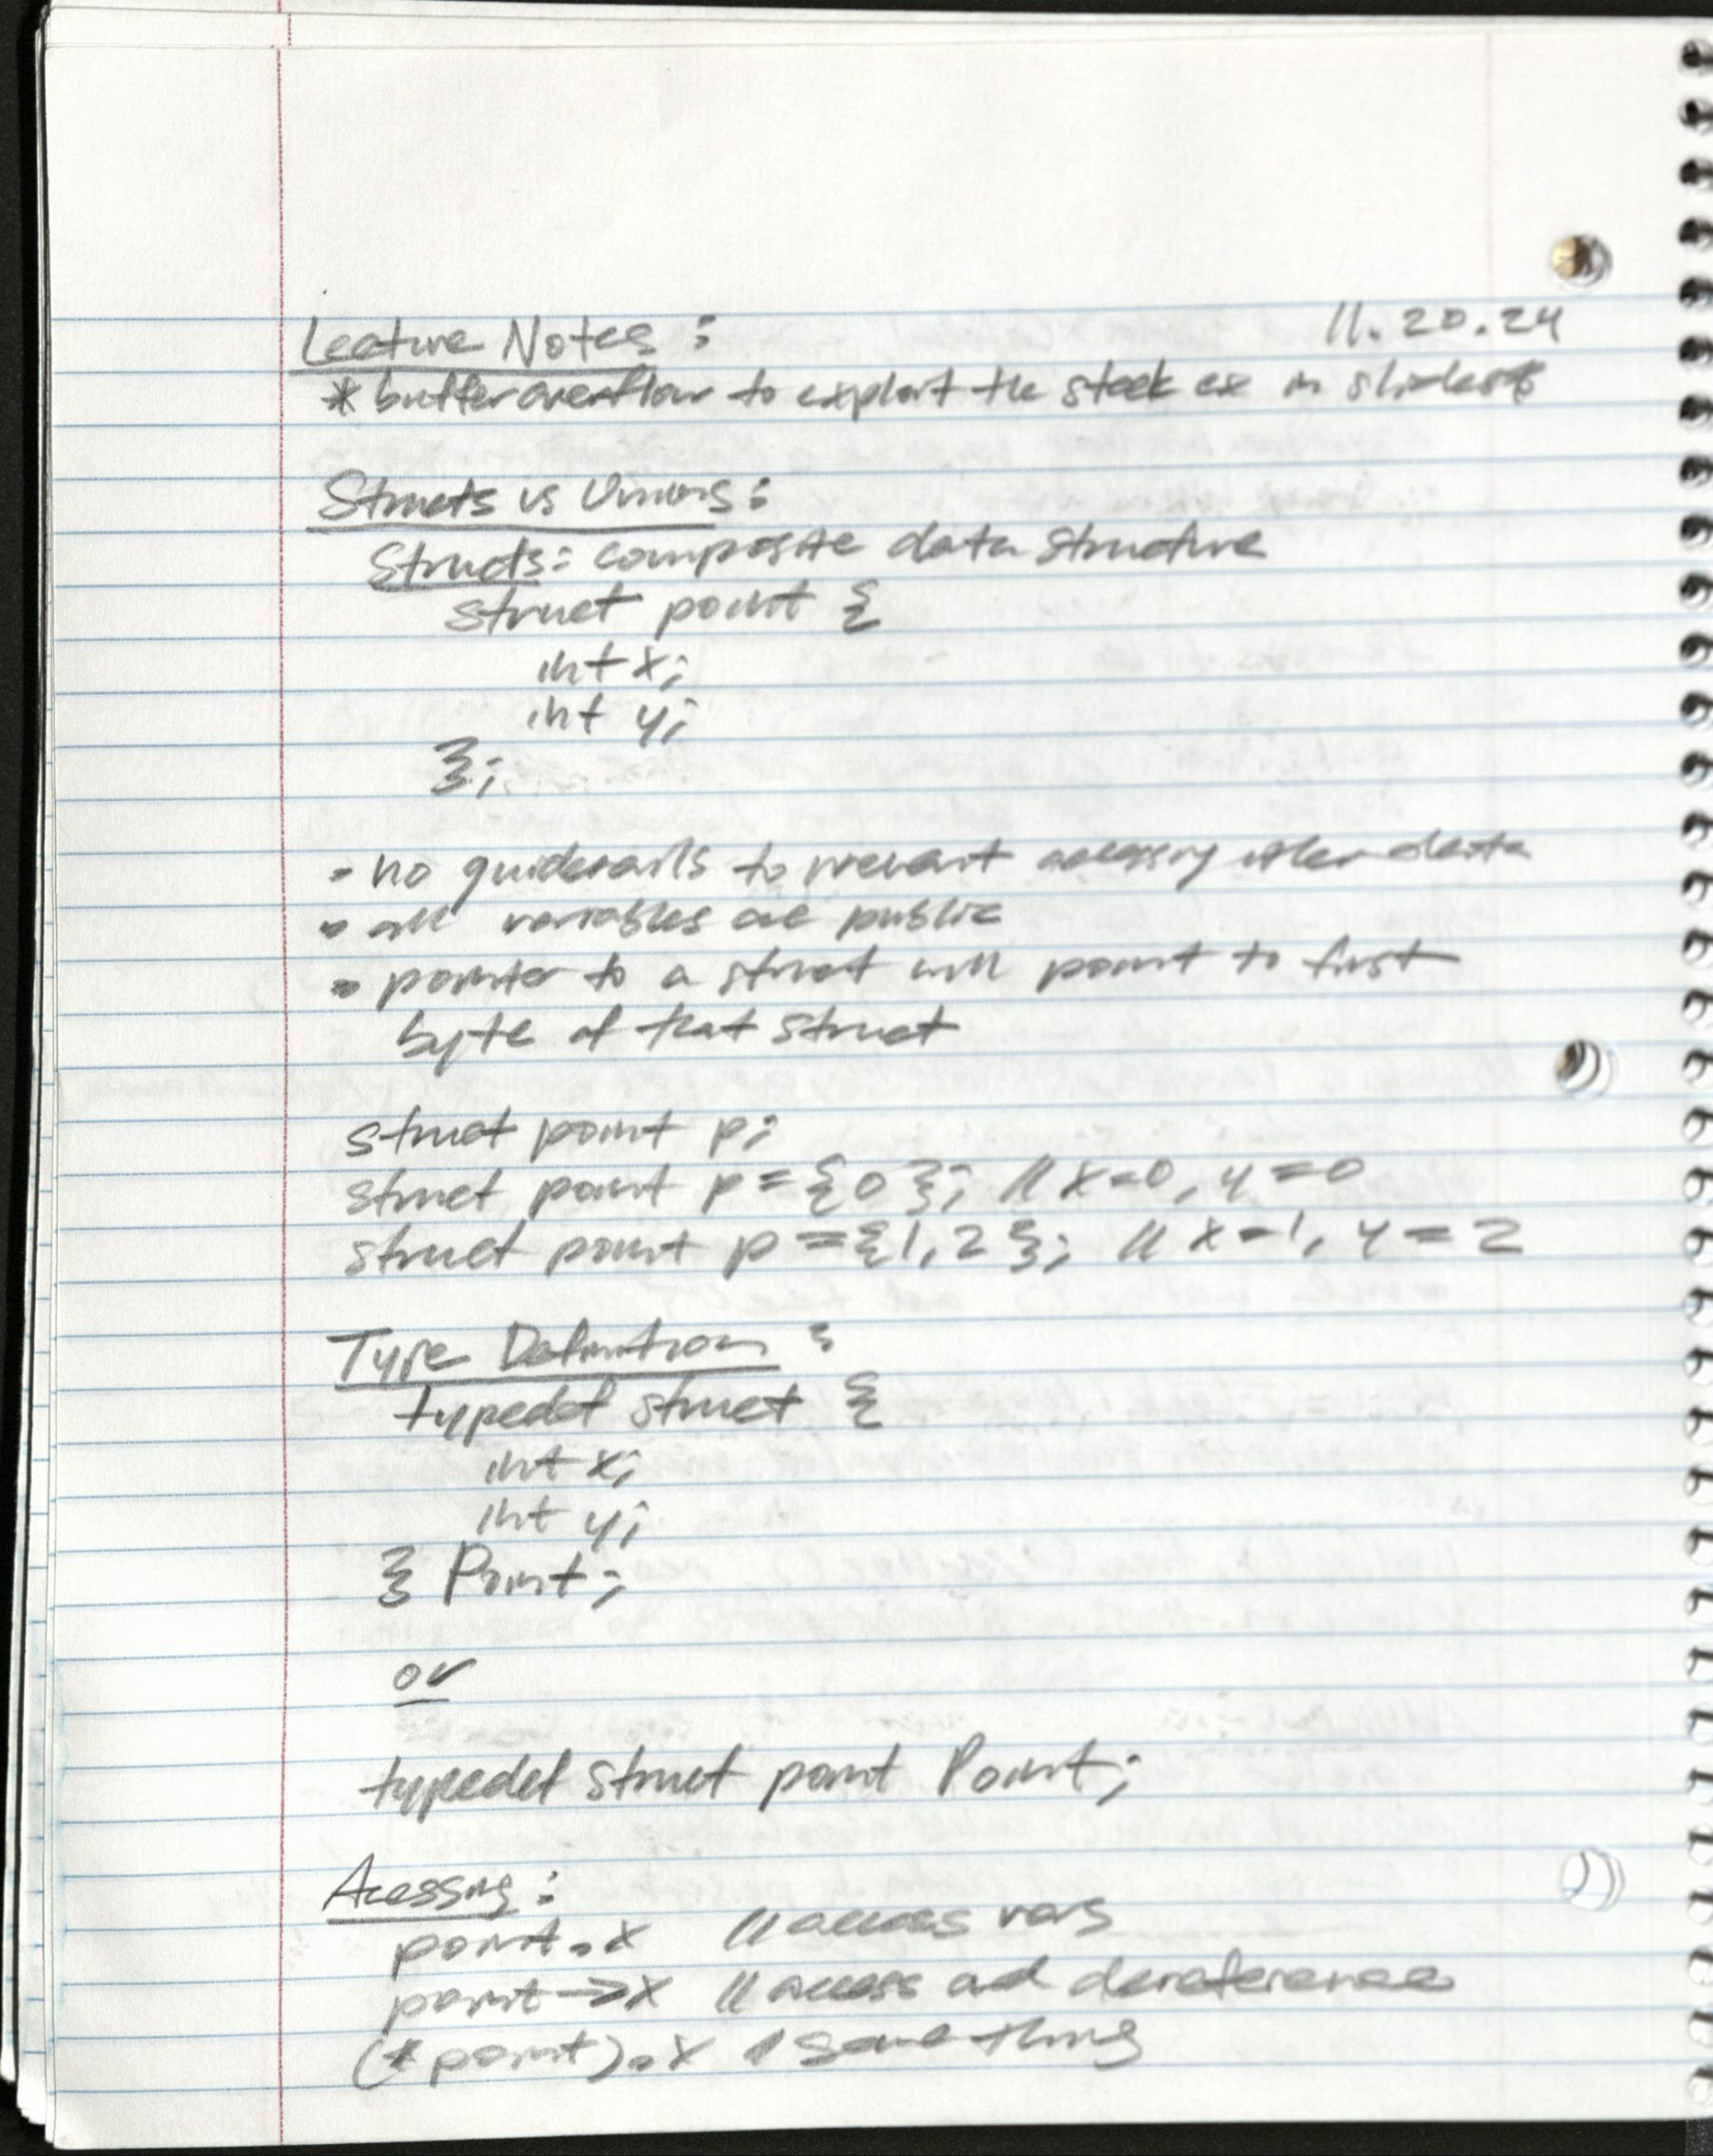 Lecture Notes: 11.20.24
* buffer overflow to exploit the stack ex in slides *
Structs vs Unions:
Structs: composite data structure
struct point {
int x;
int y;
};
- no guiderails to prevent accessing other data
- all variables are public
- pointer to a struct will point to first
byte of that struct
struct point p;
struct point p = {0}; // x=0, y=0
struct point p = {1,2}; // x=1, y=2
Type Definition:
typedef struct {
int x;
int y;
} Point;
or
typedef struct point Point;
Acessing:
point.x // access vars
point->x // access and dereference
(*point).x // same thing